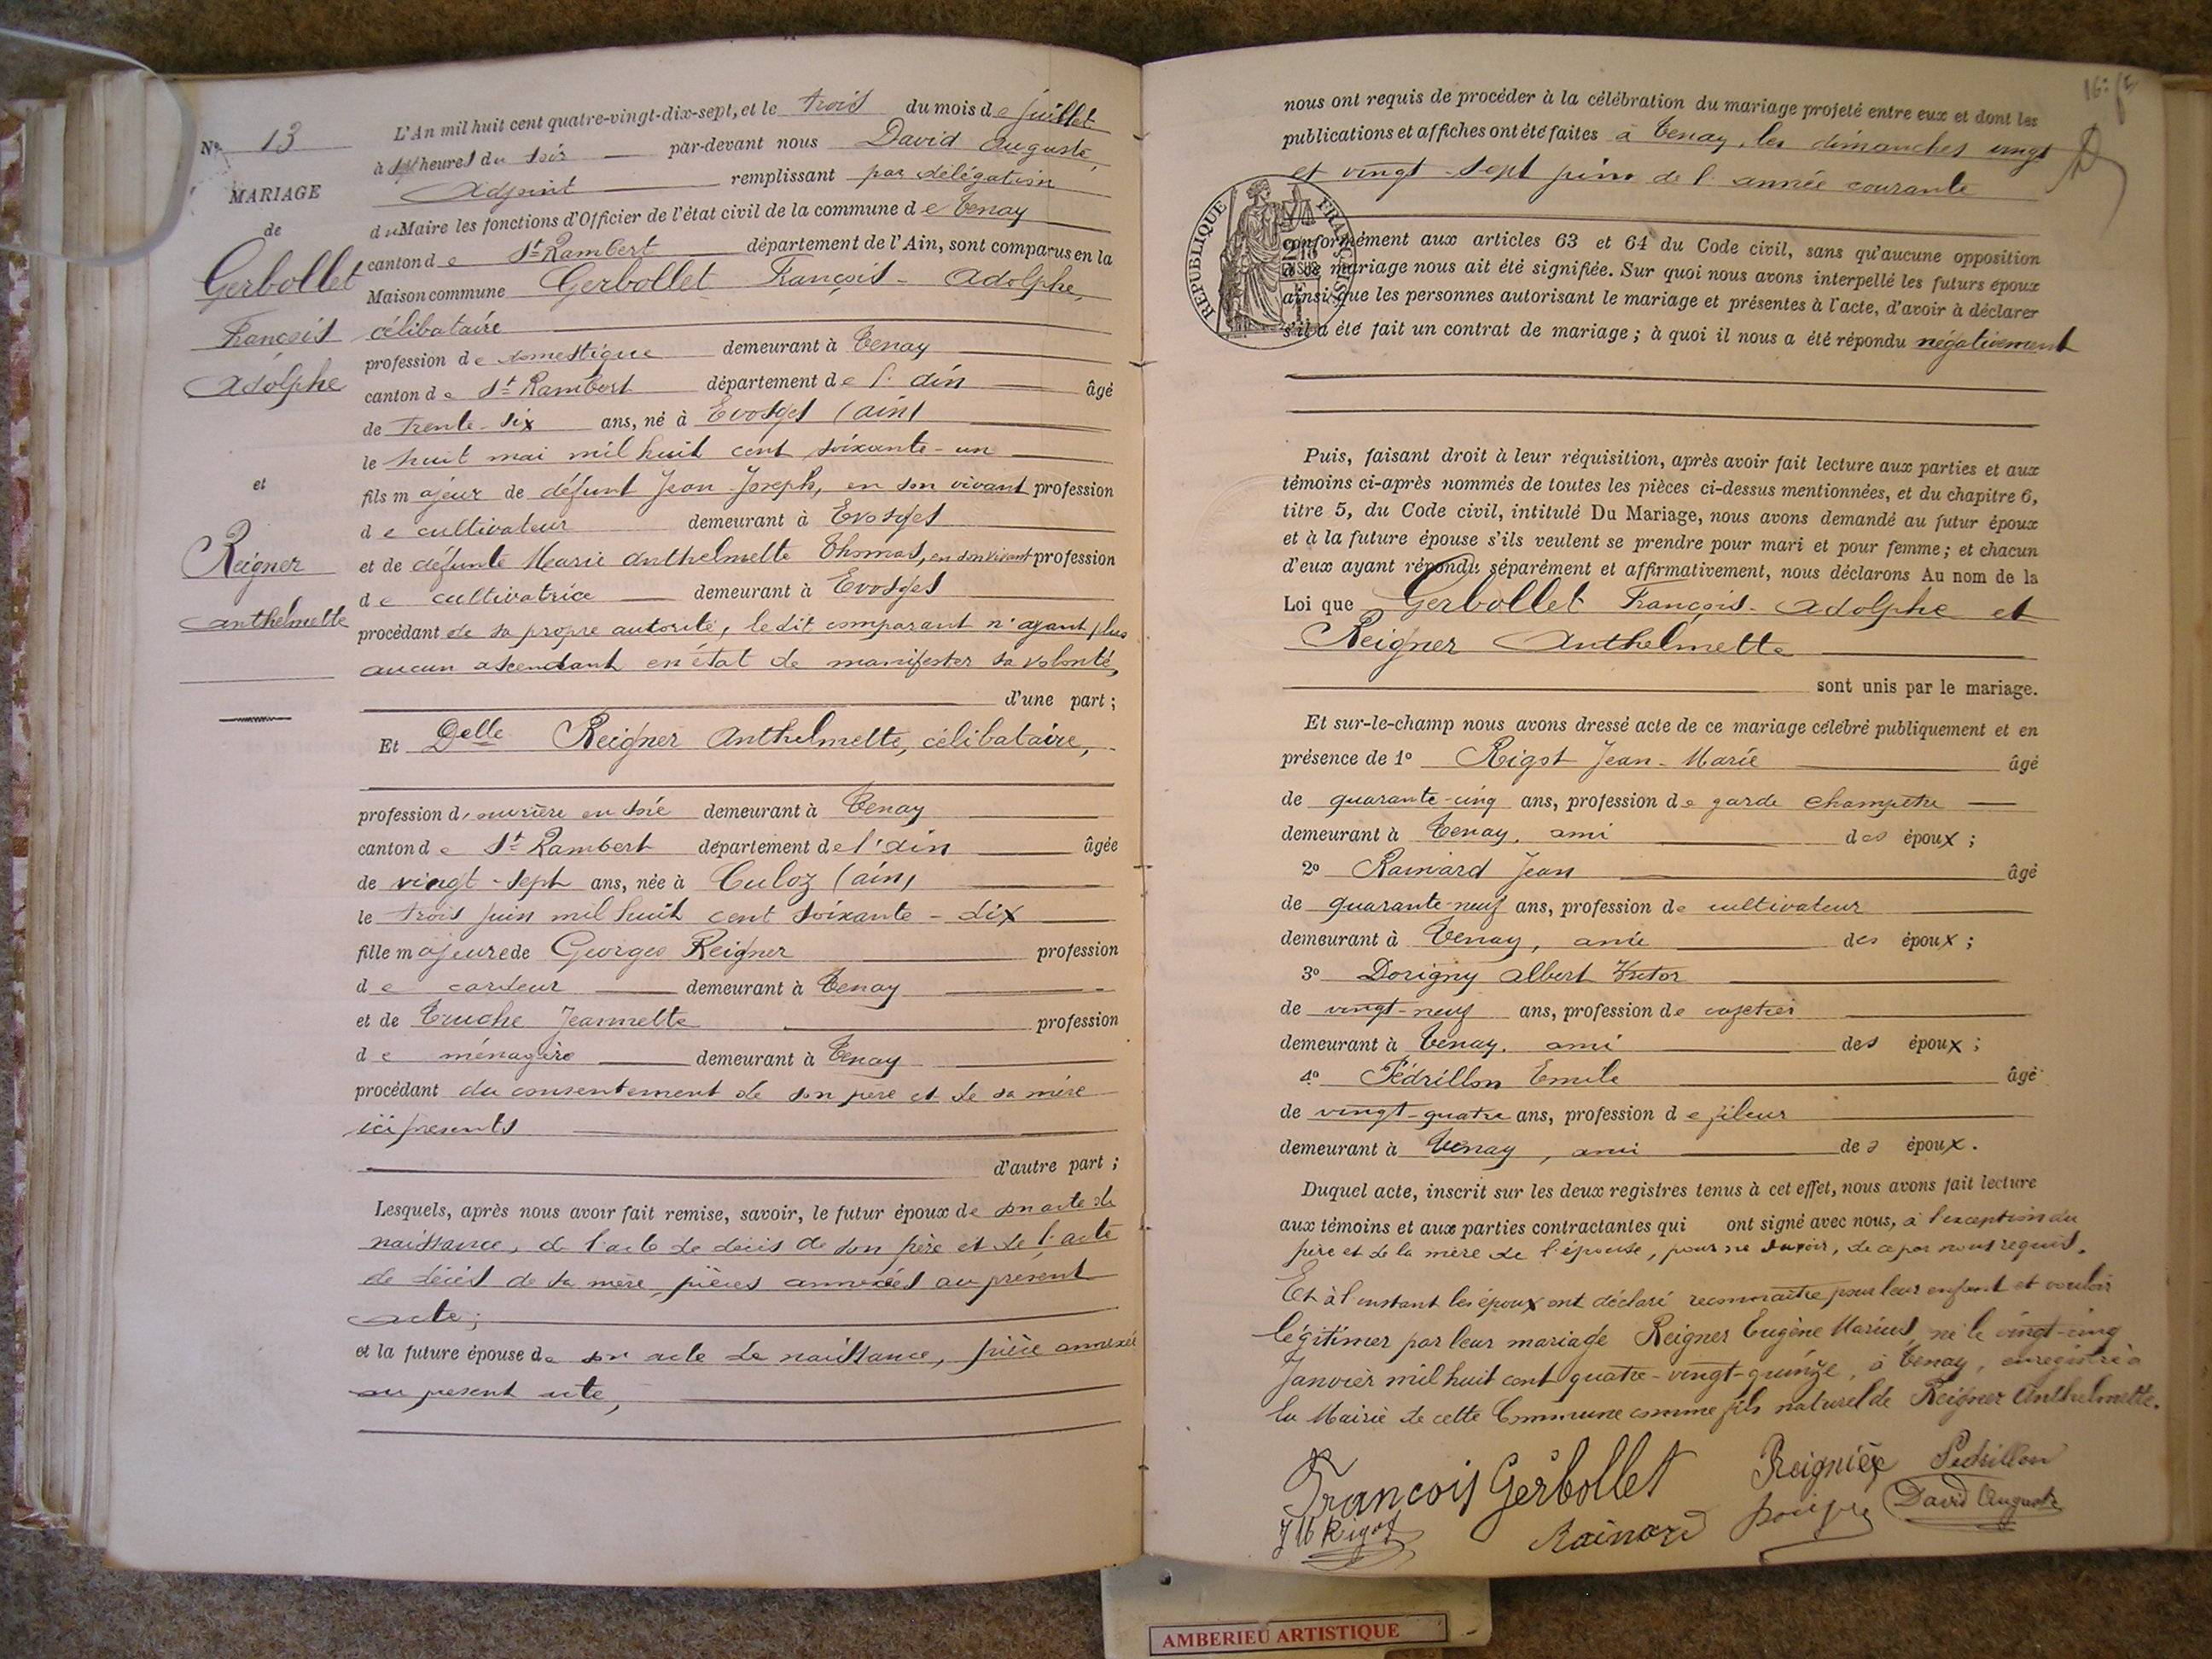 Nº 13
MARIAGE
de
Gerbollet
François
Adolphe
et
Reigner
Anthelmette
L'An mil huit cent quatre-vingt-dix-sept, et le trois du mois de juillet
à sept heures du soir par-devant nous David Auguste,
Adjoint remplissant par délégation
du Maire les fonctions d'Officier de l'état civil de la commune de Tenay
canton de St Rambert département de l'Ain, sont comparus en la
Maison commune Gerbollet François-Adolphe,
célibataire
profession de domestique demeurant à Tenay
canton de St Rambert département de l'Ain âgé
de trente-six ans, né à Evosges (Ain)
le huit mai mil huit cent soixante-un
fils majeur de défunt Jean-Joseph, en son vivant profession
de cultivateur demeurant à Evosges
et de défunte Marie Anthelmette Thomas, en son vivant profession
de cultivatrice demeurant à Evosges
procédant de sa propre autorité, le dit comparant n'ayant plus
aucun ascendant en état de manifester sa volonté,
d'une part;
Et Delle Reigner Anthelmette, célibataire,
profession d'ouvrière en soie demeurant à Tenay
canton de St Rambert département de l'Ain âgée
de vingt-sept ans, née à Culoz (Ain)
le trois juin mil huit cent soixante-dix
fille majeure de Georges Reigner profession
de cardeur demeurant à Tenay
et de Truche Jeannette profession
de ménagère demeurant à Tenay
procédant du consentement de son père et de sa mère
ici présents
d'autre part;
Lesquels, après nous avoir fait remise, savoir, le futur époux de son acte de
naissance, de l'acte de décès de son père et de l'acte
de décès de sa mère, pièces annexées au présent
acte;
et la future épouse de son acte de naissance, pièce annexée
au présent acte,
nous ont requis de procéder à la célébration du mariage projeté entre eux et dont les
publications et affiches ont été faites à Tenay, les dimanches vingt
et vingt-sept juin de l'année courante
RÉPUBLIQUE FRANÇAISE
conformément aux articles 63 et 64 du Code civil, sans qu'aucune opposition
à ce mariage nous ait été signifiée. Sur quoi nous avons interpellé les futurs époux
ainsi que les personnes autorisant le mariage et présentes à l'acte, d'avoir à déclarer
s'il a été fait un contrat de mariage; à quoi il nous a été répondu négativement
Puis, faisant droit à leur réquisition, après avoir fait lecture aux parties et aux
témoins ci-après nommés de toutes les pièces ci-dessus mentionnées, et du chapitre 6,
titre 5, du Code civil, intitulé Du Mariage, nous avons demandé au futur époux
et à la future épouse s'ils veulent se prendre pour mari et pour femme; et chacun
d'eux ayant répondu séparément et affirmativement, nous déclarons Au nom de la
Loi que Gerbollet François-Adolphe et
Reigner Anthelmette
sont unis par le mariage.
Et sur-le-champ nous avons dressé acte de ce mariage célébré publiquement et en
présence de 1º Rigot Jean-Marie âgé
de quarante-cinq ans, profession de garde champêtre
demeurant à Tenay, ami des époux;
2º Rainard Jean âgé
de quarante-neuf ans, profession de cultivateur
demeurant à Tenay, ami des époux;
3º Dorigny Albert Victor
de vingt-neuf ans, profession de cafetier
demeurant à Tenay, ami des époux;
4º Pédrillon Emile âgé
de vingt-quatre ans, profession de fileur
demeurant à Tenay, ami des époux.
Duquel acte, inscrit sur les deux registres tenus à cet effet, nous avons fait lecture
aux témoins et aux parties contractantes qui ont signé avec nous, à l'exception du
père et de la mère de l'épouse, pour ne savoir, de ce par nous requis.
Et à l'instant les époux ont déclaré reconnaître pour leur enfant et vouloir
légitimer par leur mariage Reigner Eugène Marius, né le vingt-cinq
Janvier mil huit cent quatre-vingt-quinze, à Tenay, enregistré à
la Mairie de cette Commune comme fils naturel de Reigner Anthelmette.
François Gerbollet Reignier Pedrillon
J M Rigot Rainard David Auguste
AMBERIEU ARTISTIQUE